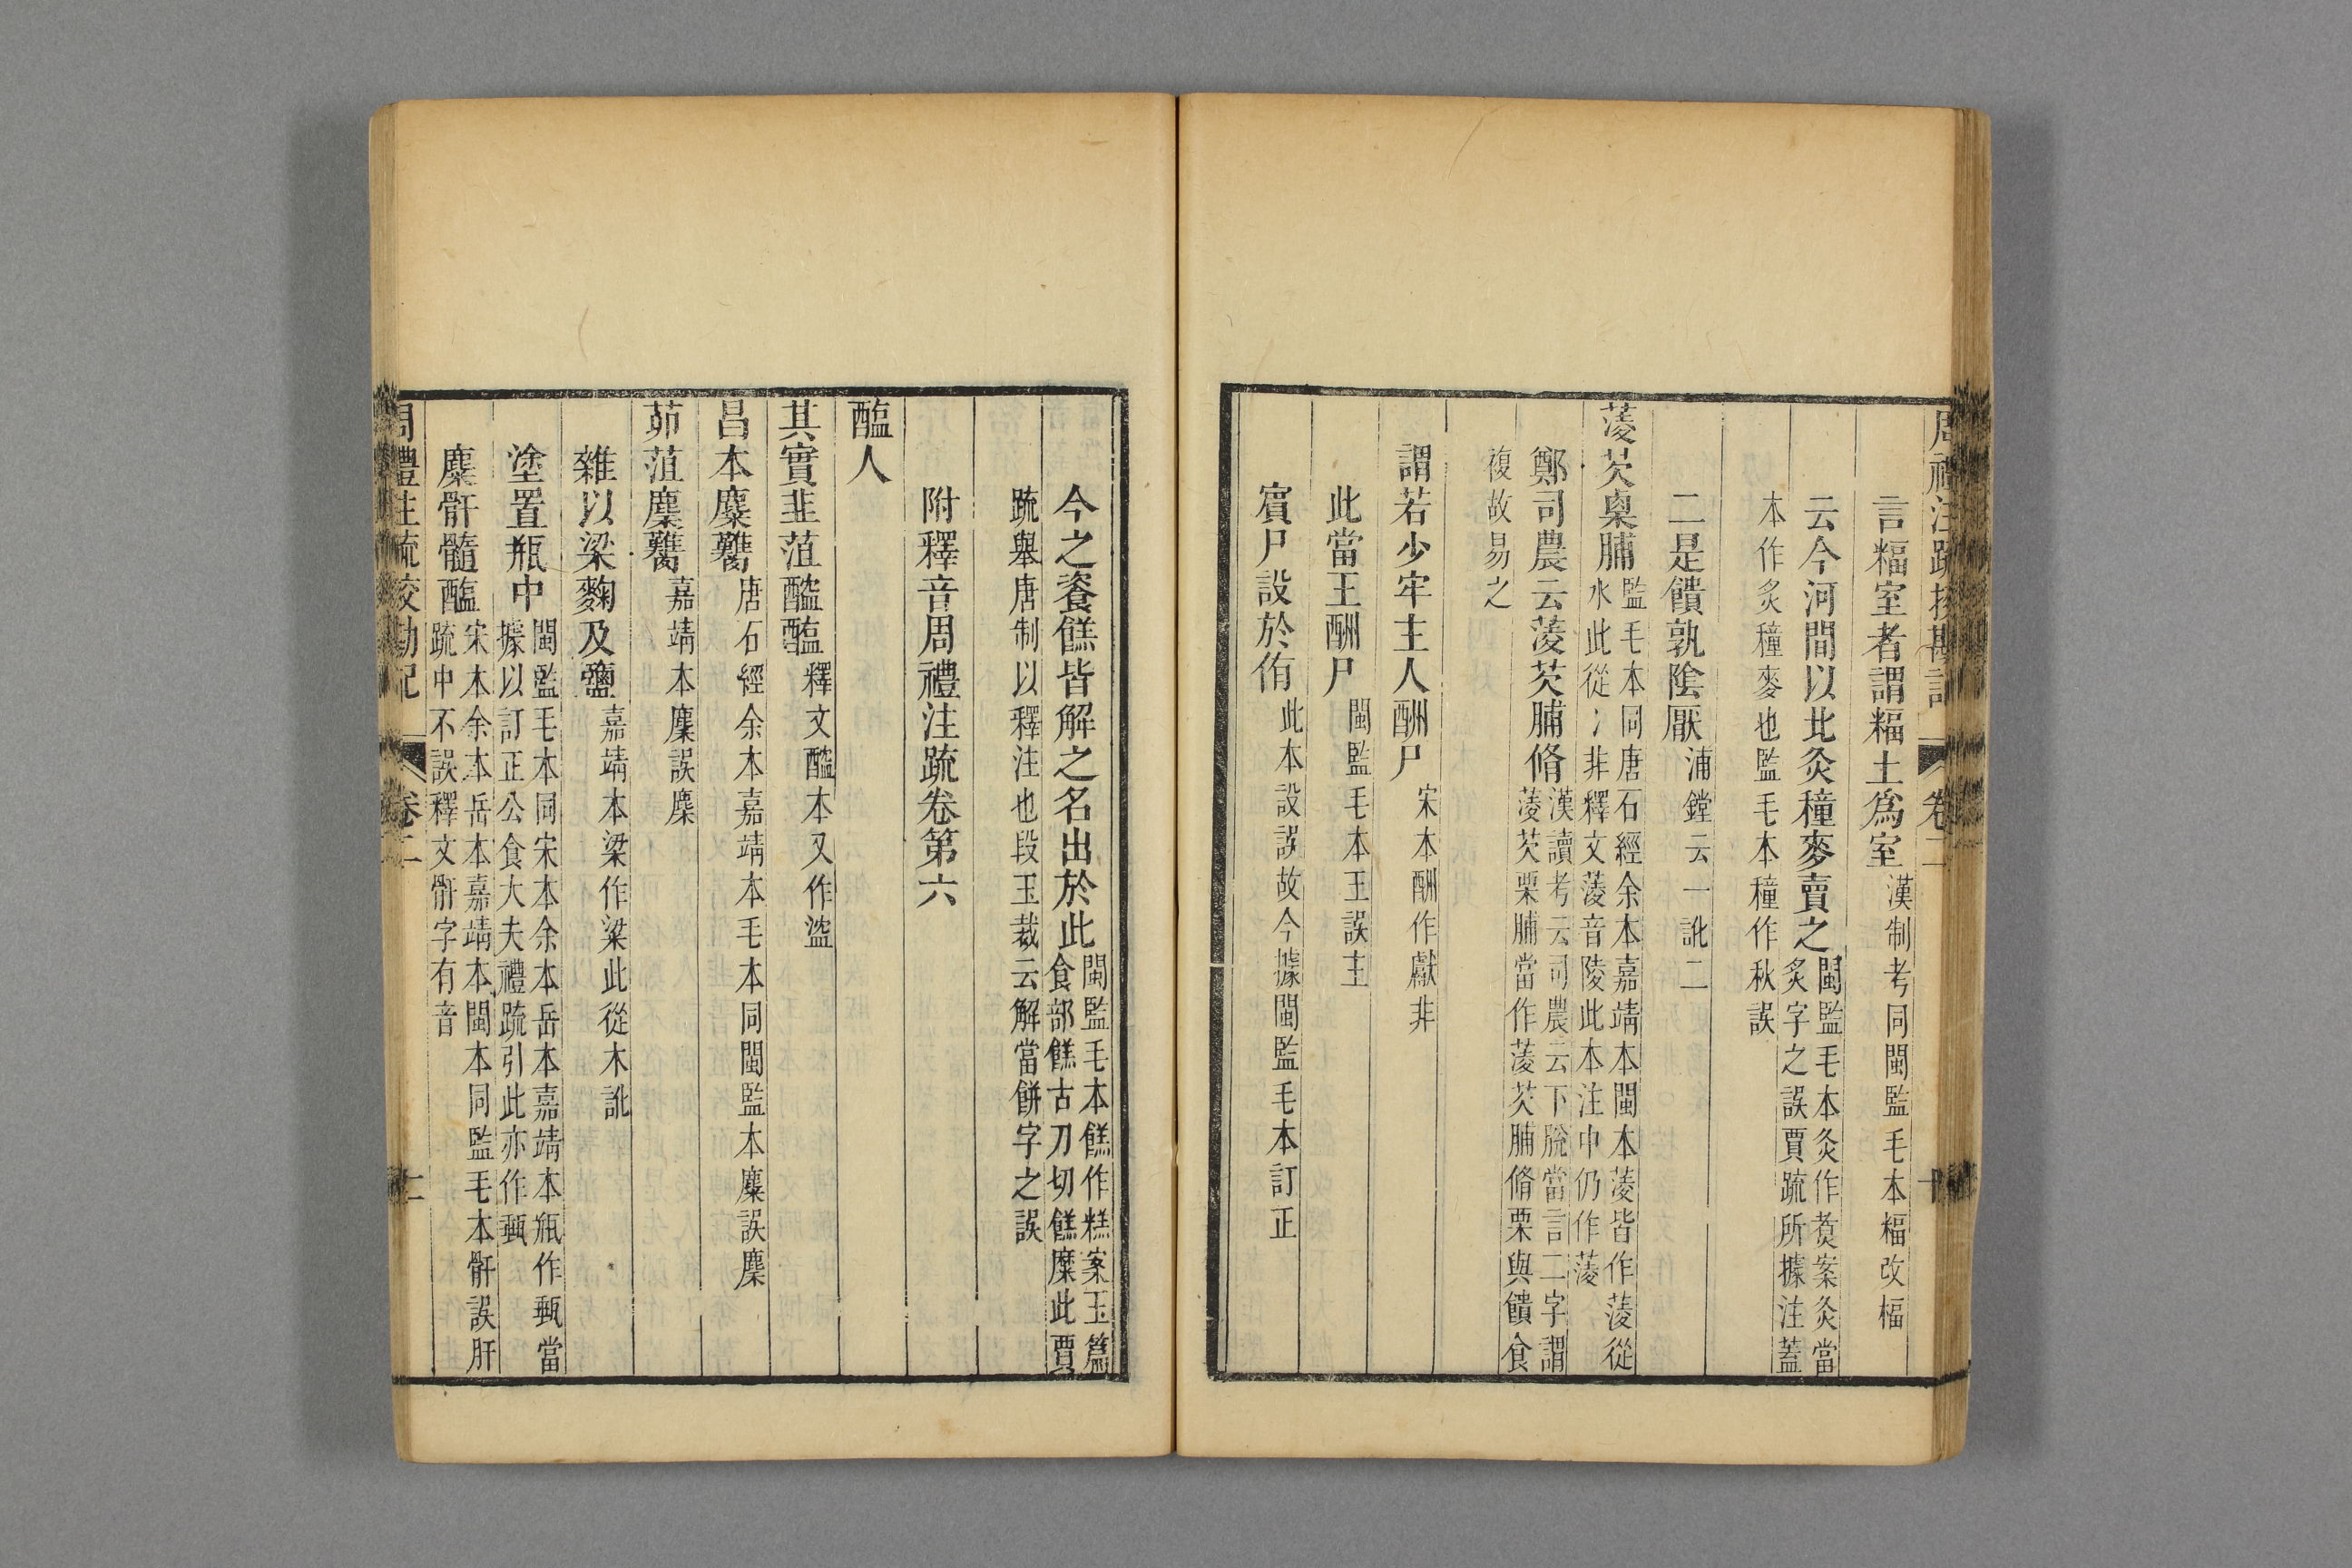 周禮注疏挍勘記 卷二 十
言楅室者謂楅土爲室漢制考同閩監毛本楅改福
云今河間以北灸穜麥賣之閩監毛本灸作煑案灸當
炙字之誤賈疏所據注蓋
本作炙穜麥也監毛本穜作秋誤
二是饋孰陰厭浦鏜云一訛二
蔆芡㮚脯監毛本同唐石經余本嘉靖本閩本蔆皆作菱從
水此從冫非釋文蔆音陵此本注中仍作菱
鄭司農云菱芡脯脩漢讀考云司農云下脫當言二字謂
菱芡栗脯當作菱芡脯脩栗與饋食
複故易之
謂若少牢主人酬尸宋本酬作獻非
此當王酬尸閩監毛本王誤主
賓尸設於侑此本設誤故今據閩監毛本訂正
今之餈餻皆解之名出於此閩監毛本餻作糕案玉篇
食部餻古刀切餻糜此賈
疏舉唐制以釋注也段玉裁云解當餅字之誤
附釋音周禮注疏卷第六
醢人
其實韭菹醓醢釋文醓本又作盜
昌本麋臡唐石經余本嘉靖本毛本同閩監本麋誤麇
茆菹麇臡嘉靖本麇誤麋
雜以梁麴及鹽嘉靖本梁作粱此從木訛
塗置瓶中閩監毛本同宋本余本岳本嘉靖本瓶作甄當
據以訂正公食大夫禮疏引此亦作甄
麋骭髓醢宋本余本岳本嘉靖本閩本同監毛本骭誤肝
疏中不誤釋文骭字有音
周禮注疏挍勘記 卷二 十一